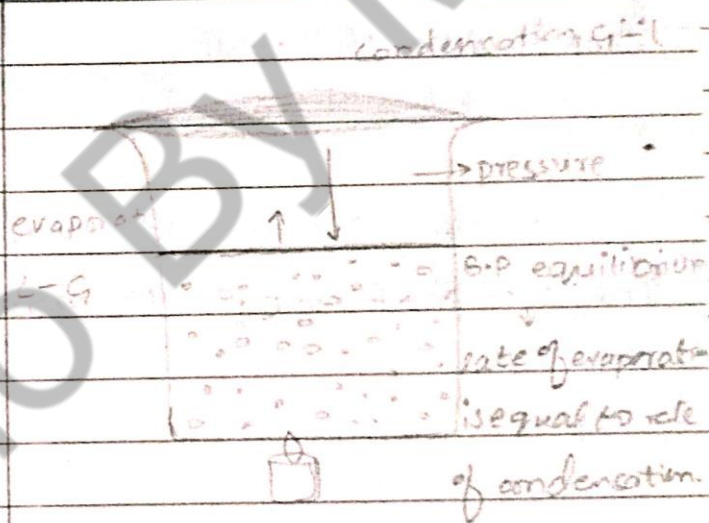 condensation G-L
→ pressure
evaporat
L-G
B.P equilibrium
rate of evaporat
is equal to rate
of condensation.